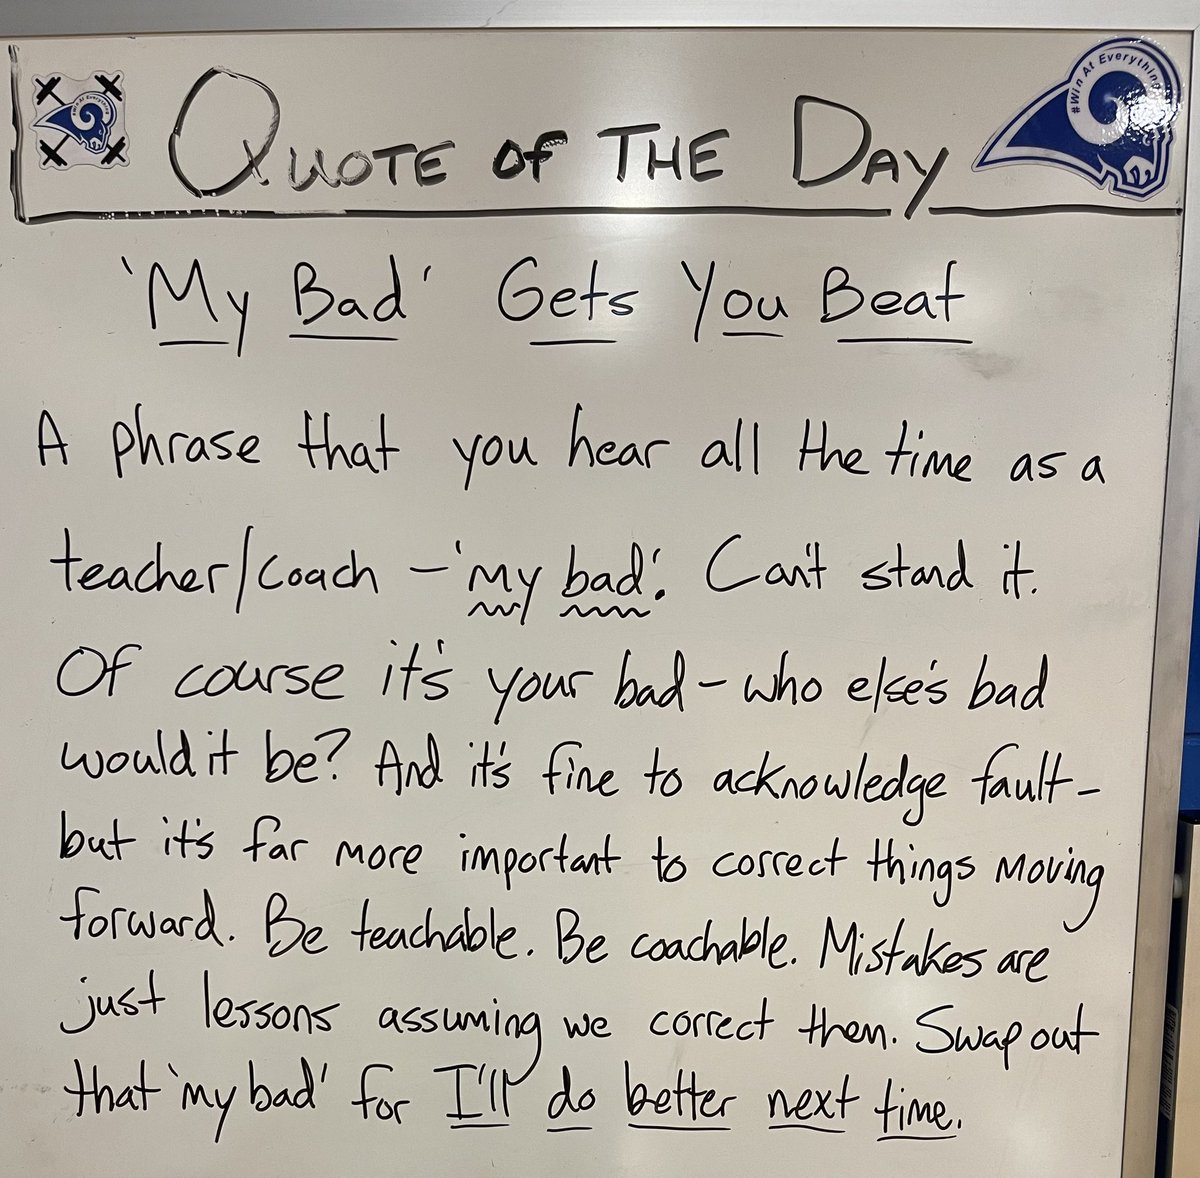 #Win At Everything
#Win At Everything
QUOTE OF THE DAY
'My Bad' Gets You Beat
A phrase that you hear all the time as a
teacher/coach - 'my bad'. Can't stand it.
Of course it's your bad - who else's bad
would it be? And it's fine to acknowledge fault -
but it's far more important to correct things moving
forward. Be teachable. Be coachable. Mistakes are
just lessons assuming we correct them. Swap out
that 'my bad' for I'll do better next time.